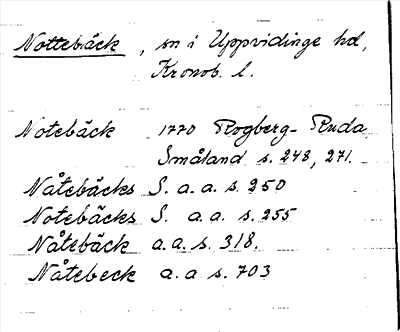 Nottebäck, sn i Uppvidinge hd,
Kronob. l.
Notebäck 1770 Rogberg-Ruda
Småland s. 248, 271.
Nåtebäcks S. a. a. s. 250
Notebäcks S. a. a. s. 255
Nåtebäck a. a. s. 318.
Nåtebeck a. a. s. 703